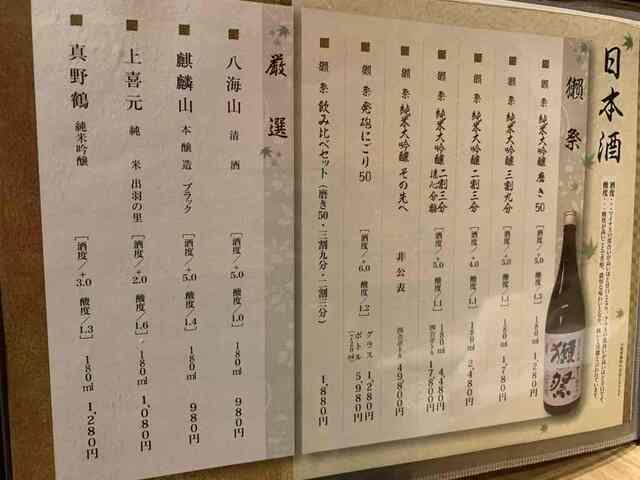 日本酒
獺祭
獺祭 純米大吟醸 磨き50 [酒度/+5.0 酸度/1.3] 180ml 1,280円
獺祭 純米大吟醸 三割九分 [酒度/+5.0 酸度/1.1] 180ml 1,780円
獺祭 純米大吟醸 二割三分 [酒度/+4.0 酸度/1.1] 180ml 2,480円
獺祭 純米大吟醸 二割三分 遠心分離 [酒度/+5.0 酸度/1.1] 180ml 4,480円
四合ボトル 17,800円
獺祭 純米大吟醸 その先へ 非公表 四合ボトル 49,800円
獺祭 発砲にごり50 [酒度/+6.0 酸度/1.2] グラス 1,280円
ボトル 5,980円
獺祭 飲み比べセット(磨き50・三割九分・二割三分) 1,880円
厳選
八海山 清酒 [酒度/+5.0 酸度/1.0] 180ml 980円
麒麟山 本醸造 ブラック [酒度/+5.0 酸度/1.4] 180ml 980円
上喜元 純米 出羽の里 [酒度/+2.0 酸度/1.6] 180ml 1,080円
真野鶴 純米吟醸 [酒度/+3.0 酸度/1.3] 180ml 1,280円
獺祭